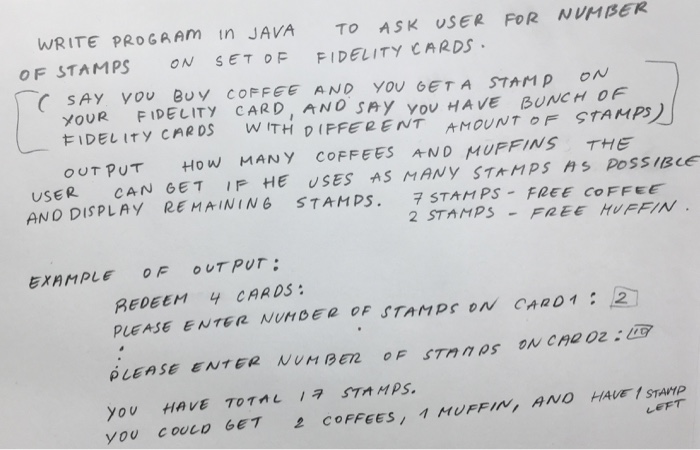 WRITE PROGRAM in JAVA TO ASK USER FOR NUMBER
OF STAMPS ON SET OF FIDELITY CARDS.
( SAY YOU BUY COFFEE AND YOU GET A STAMP ON
YOUR FIDELITY CARD, AND SAY YOU HAVE BUNCH OF
FIDELITY CARDS WITH DIFFERENT AMOUNT OF STAMPS)
OUTPUT HOW MANY COFFEES AND MUFFINS THE
USER CAN GET IF HE USES AS MANY STAMPS AS POSSIBLE
AND DISPLAY REMAINING STAMPS. 7 STAMPS - FREE COFFEE
2 STAMPS - FREE MUFFIN.
EXAMPLE OF OUTPUT:
REDEEM 4 CARDS:
PLEASE ENTER NUMBER OF STAMPS ON CARD1: 2
:
PLEASE ENTER NUMBER OF STAMPS ON CARD2:
YOU HAVE TOTAL 17 STAMPS.
YOU COULD GET 2 COFFEES, 1 MUFFIN, AND HAVE 1 STAMP
LEFT